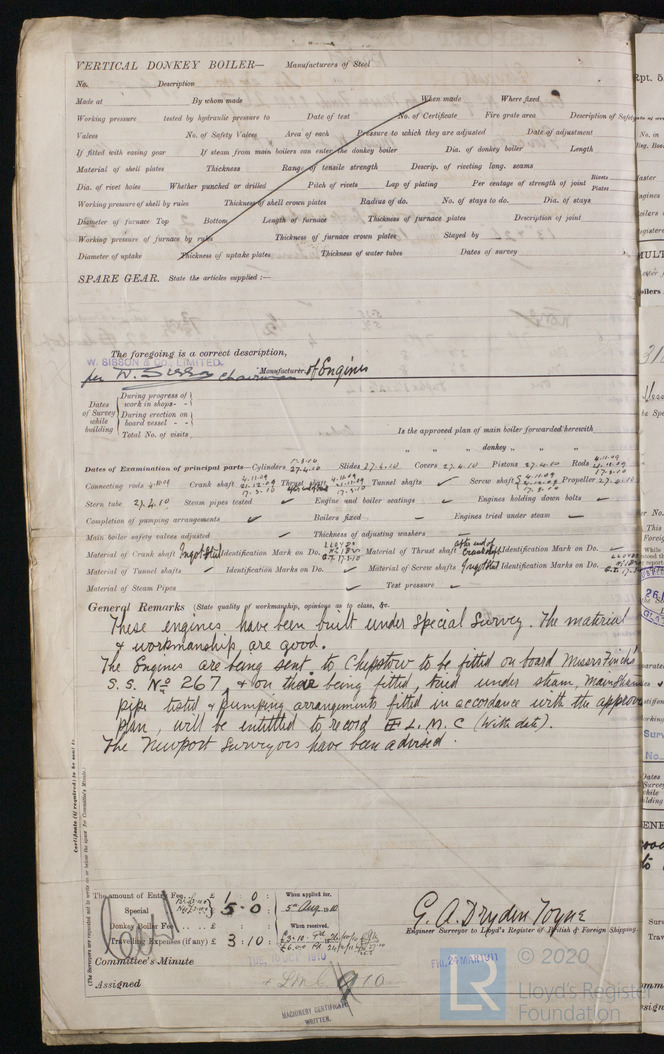 VERTICAL DONKEY BOILER— Manufacturers of Steel
No. Description
Made at By whom made When made Where fixed
Working pressure tested by hydraulic pressure to Date of test No. of Certificate Fire grate area Description of Safety
Valves No. of Safety Valves Area of each Pressure to which they are adjusted Date of adjustment
If fitted with easing gear If steam from main boilers can enter the donkey boiler Dia. of donkey boiler Length
Material of shell plates Thickness Range of tensile strength Descrip. of riveting long. seams
Dia. of rivet holes Whether punched or drilled Pitch of rivets Lap of plating Per centage of strength of joint Rivets Plates
Working pressure of shell by rules Thickness of shell crown plates Radius of do. No. of stays to do. Dia. of stays
Diameter of furnace Top Bottom Length of furnace Thickness of furnace plates Description of joint
Working pressure of furnace by rules Thickness of furnace crown plates Stayed by
Diameter of uptake Thickness of uptake plates Thickness of water tubes Dates of survey
SPARE GEAR. State the articles supplied :—
The foregoing is a correct description,
W. SISSON & CO., LIMITED.
per W. Sisson Chairman Manufacturer of Engines
Dates of Survey while building
During progress of work in shops - -
During erection on board vessel - - -
Total No. of visits
Is the approved plan of main boiler forwarded herewith
" " " donkey " " "
Dates of Examination of principal parts—Cylinders 27.4.10 Slides 27.4.10 Covers 27.4.10 Pistons 27.4.10 Rods 4.11.09
Connecting rods Crank shaft 4.11.09 21.12.09 17.3.10 Thrust shaft 4.11.09 17.3.10 Tunnel shafts ✓ Screw shaft 4.11.09 17.3.10 Propeller 27.4.10
Stern tube 27.4.10 Steam pipes tested ✓ Engine and boiler seatings ✓ Engines holding down bolts ✓
Completion of pumping arrangements ✓ Boilers fixed ✓ Engines tried under steam ✓
Main boiler safety valves adjusted ✓ Thickness of adjusting washers
Material of Crank shaft Ingot Steel Identification Mark on Do. LLOYDS G.T. 17.3.10 Material of Thrust shaft after end of crankshaft Identification Mark on Do. ✓
Material of Tunnel shafts ✓ Identification Marks on Do. ✓ Material of Screw shafts Ingot Steel Identification Marks on Do. LLOYDS G.T. 17.3.10
Material of Steam Pipes ✓ Test pressure ✓
General Remarks (State quality of workmanship, opinions as to class, &c.
These engines have been built under Special Survey. The material
& workmanship, are good.
The Engines are being sent to Chepstow to be fitted on board Messrs Finch's
S.S. No 267, & on their being fitted, tried under steam, main steam
pipe tested & pumping arrangements fitted in accordance with the approved
plan, will be entitled to record L.M.C (with date).
The Newport Surveyors have been advised.
Certificate (if required) to be sent to
(The Surveyors are requested not to write on or below the space for Committee's Minute.)
The amount of Entry Fee .. £ 1 : 0 : When applied for,
Special £ 5 . 0 : 5th Aug 1910
Donkey Boiler Fee .. .. .. £ : : When received,
Travelling Expenses (if any) £ 3 . 10 :
G. A. Dryden Toyne
Engineer Surveyor to Lloyd's Register of British & Foreign Shipping.
Committee's Minute
FRI. 24 MAR 1911
Assigned + L.M.C. 9 10
MACHINERY CERTIFICATE
WRITTEN.
© 2020
LR
Lloyd's Register
Foundation